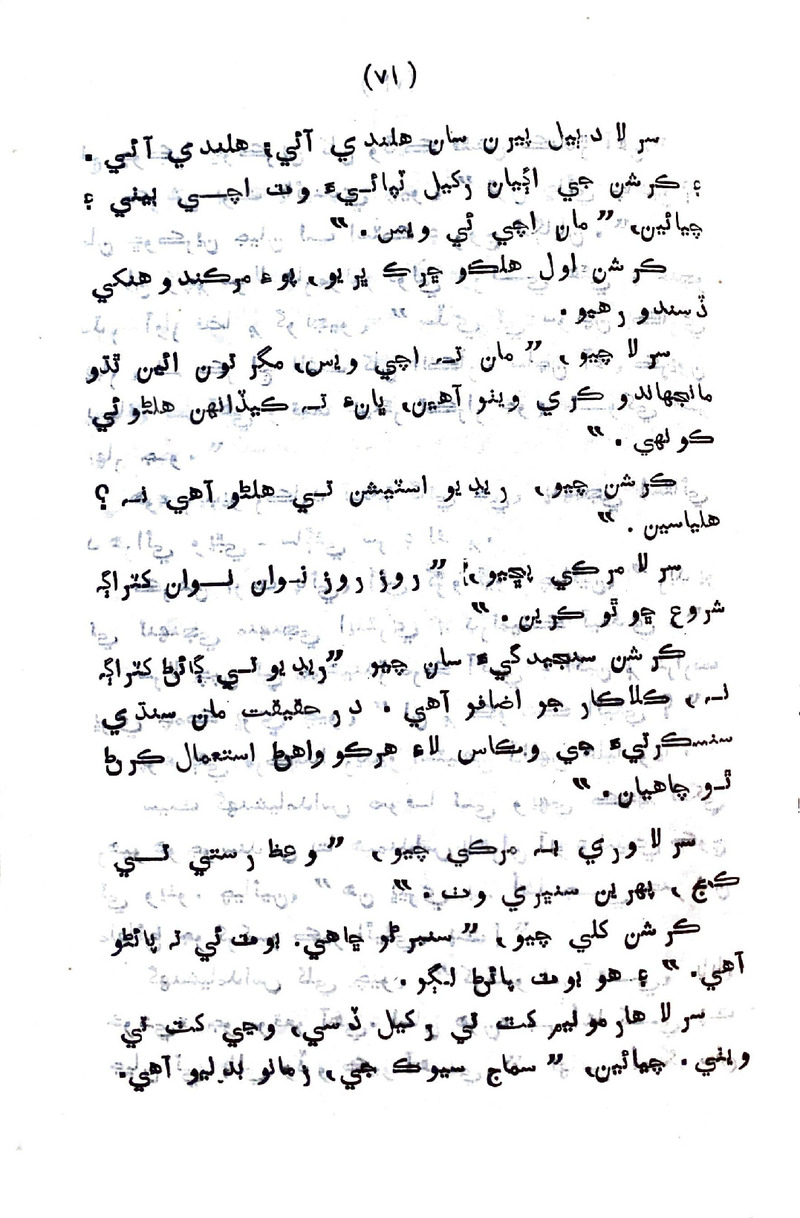 (٧١)
سرلا دٻيل پيرن سان هلندي آئي، هلندي آئي.
۽ ڪرشن جي اڳيان رکيل ٽپائيءَ وٽ اچي بيٺي ۽
چيائين، ”مان اچي ئي ويس.“
ڪرشن اول هلڪو ڇرڪ ڀريو، پوءِ مرڪندو هنکي
ڏسندو رهيو.
سرلا چيو، ”مان تہ اچي ويس، مگر تون ائين ٿڌو
مانجهاندو ڪري ويٺو آهين، ڀانءِ تہ ڪيڏانهن هلڻو ئي
ڪونهي.“
ڪرشن چيو، ريڊيو اسٽيشن تي هلڻو آهي نہ؟
هلياسين.“
سرلا مرڪي پڇيو، ”روز روز نوان نوان کٽراڳہ
شروع ڇو ٿو ڪرين.“
ڪرشن سنجيدگيءَ سان چيو ”ريڊيو تي ڳائڻ کٽراڳہ
نہ، ڪلاڪار جو اضافو آهي. در حقيقت مان سنڌي
سنسڪرتيءَ جي وڪاس لاءِ هرڪو واهڻ استعمال ڪرڻ
ٿو چاهيان.“
سرلا وري بہ مرڪي چيو، ”وعظ رستي تي
ڪج، پهرين سنڀري وٺ.“
ڪرشن کلي چيو، ”سنڀرڻو ڇاهي. بوٽ ئي تہ پائڻو
آهي.“ ۽ هو بوٽ پائڻ لڳو.
سرلا هارمونيم کٽ تي رکيل ڏسي، وڃي کٽ تي
ويٺي. چيائين، ”سماج سيوڪ جي، زمانو بدليو آهي.